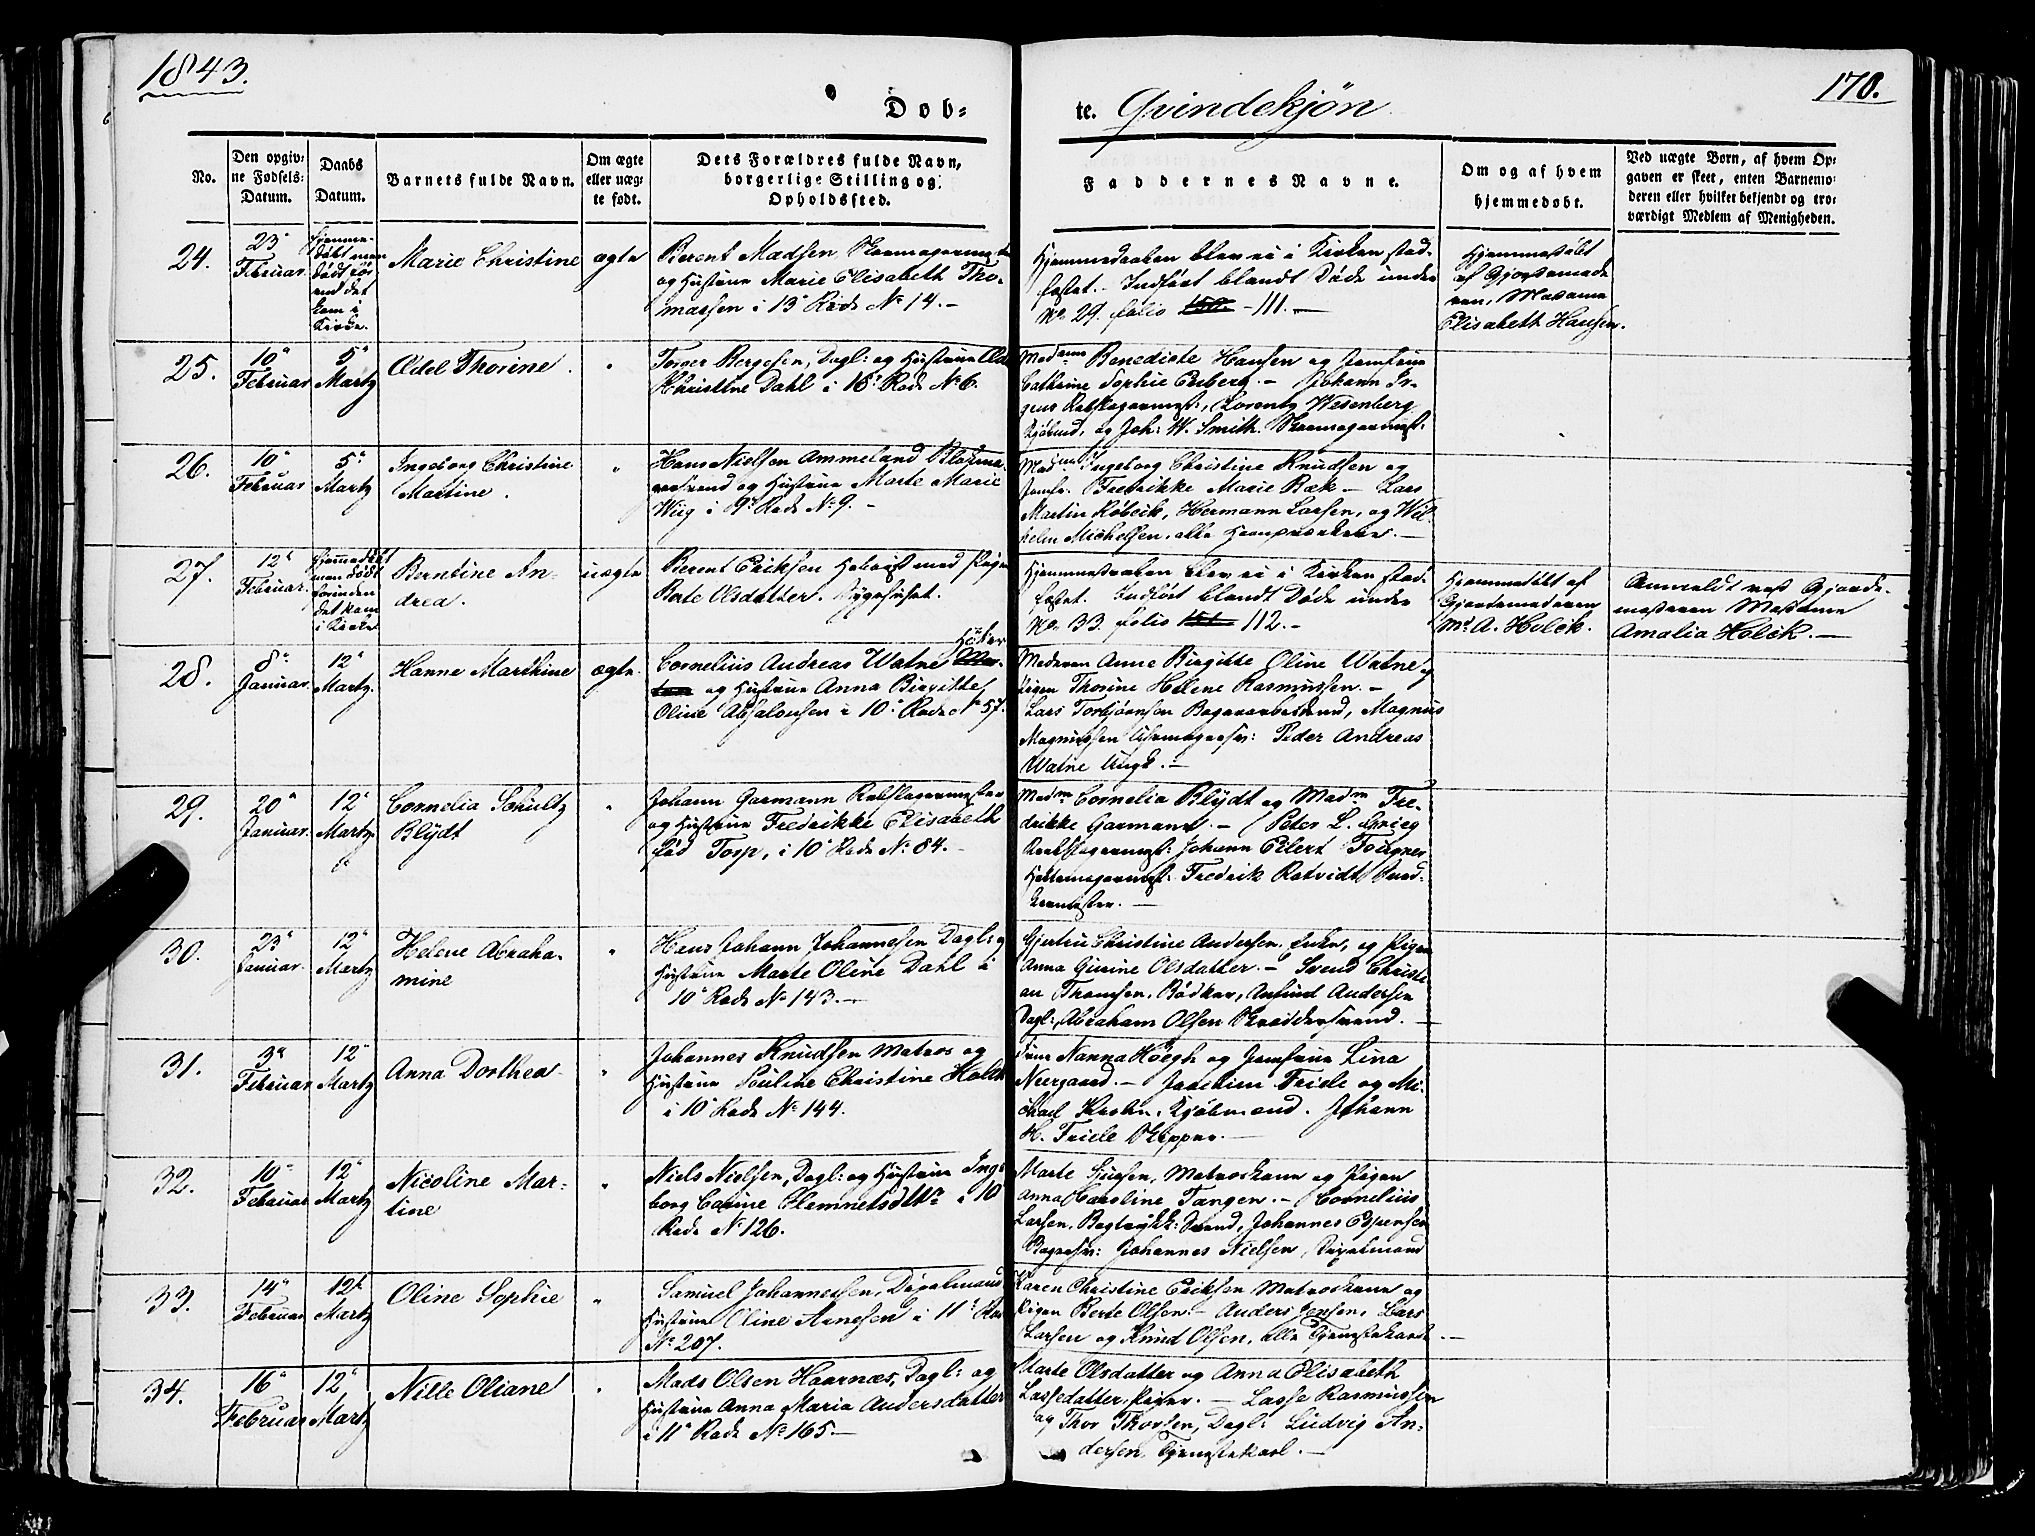 1843.
170.
Døb-
te. Qvindekjøn
No.
Den opgiv-
ne Fødsels-
Datum.
Daabs
Datum.
Barnets fulde Navn.
Om ægte
eller uæg-
te født.
Dets Forældres fulde Navn,
borgerlige Stilling og
Opholdssted.
Faddernes Navne.
Om og af hvem
hjemmedøbt.
Ved uægte Børn, af hvem Op-
gaven er skeet, enten Barnemo-
deren eller hvilket bekjendt og tro-
værdigt Medlem af Menigheden.
24.
23
Februar.
Hjemme-
døbt men
dødt før
end det
kom i
Kirke.
Marie Christine
ægte
Berent Madsen, Skomagermester
og Hustrue Marie Elisabeth Tho-
massen i 13 Rode No 14.-
Hjemmedaaben blev ei i Kirken stad-
fæstet.- Indført blandt Døde under
No 29. folio 150. -111.-
Hjemmedøbt
af Gjordemode
ren, Madame
Elisabeth Hansen.
25.
10
Februar
5
Martz
Edel Thorine
"
Torger Bergesen, Dagl: og Hustrue
Christine Dahl i 18 Rode No 6.
Madame Benedicte Hansen og Jomfrue
Cathrine Sophie - Johann Ir-
gens Rebslagermest:, Lorentz Wesenberg
Kjøbmd, og Joh: W. Smith Skomagermest:
26.
10
Februar
5
Martz
Ingeborg Christine
Martine.
"
Hans Nielsen Ammeland
svend og Hustrue Marte Marie
Wiig i 9 Rode No 9.-
Madme Ingeborg Christine Knudsen og
Jomfr. Fredrikke Marie Bæk - Lars
Martin Røbeik, Hermann Larsen, og Wil-
helm Michelsen, alle
27.
12
Februar.
Hjemmedøbt
men dødt
forinden
det kom
i Kirke
Berntine An-
drea.
uægte
Berent Eriksen med Pigen
Berte Olsdatter. Sygehuset.
Hjemmedaaben blev ei i Kirken stad-
fæstet. Indført blandt Døde under
No 33. folio 151 112.-
Hjemmedøbt af
Gjordemoderen
Md A. Holck.
Anmeldt ved Gjorde-
moderen Madame
Amalia Holck.-
28.
8
Januar.
12
Martz.
Hanne Marthine
ægte
Høker
Cornelius Andreas Watne
og Hustrue Anna Birgitte
Oline Absalonsen i 10 Rode No 57.
Moderen Anne Birgitte Oline Watne og
Pigen Thorine Helene Rasmussen.-
Lars Torbjørnsen Bagersvend, Magnus
Magnussen Peder Andreas
Watne Ungk.-
29.
20
Januar.
12
Martz
Cornelia Schultz
Blydt
"
Johann Garmann Rebslagermester
og Hustrue Fredrikke Elisabeth
fød Torp, i 10 Rode No 84.-
Madm Cornelia Blydt og Madm Fre-
drikke Garmann.- Peter L. Grieg
Rebslagermest: Johann Eilert Fougner
Hattemagermest: Fredrik Ratvidt
30.
23
Januar.
12
Martz
Helene Abraha-
mine
"
Hans Johann Johannesen Dagl: og
Hustrue Marte Oline Dahl i
10 Rode No 143.-
Gjertru Christine Andersen, Enke, og Pigen
Anna Gurine Olsdatter.- Svend Christi-
an Thomsen, Bødker, Anfind Andersen
Dagl:, Abraham Olsen Skræddersvend.
31.
3
Februar
12
Martz
Anna Dorthea
"
Johannes Knudsen Matros og
Hustrue Pouline Christine Holck
i 10 Rode No 144.
Frue Nanna Høegh og Jomfrue Lina
Neergaard.- Joachim Friele og Mi-
chael Krohn, Kjøbmænd. Johann
H. Friele Skipper.
32.
10
Februar
12
Martz
Nicoline Mar-
tine
"
Niels Nielsen, Dagl: og Hustrue Inge-
borg Carine Clemmetsdttr i 10
Rode No 126.
Marte Sjursen, Matroskone og Pigen
Anna Caroline Tangen.- Cornelius
Larsen, Bogtrykk: Svend, Johannes Espensen
Bagersv: Johannes Nielsen,
33.
14
Februar
12
Martz
Oline Sophie
"
Samuel Johannessen,
Hustrue Oline Arnesen i 11 Rode
No 207.
Karen Christine Eriksen Matroskone og
Pigen Berte Olsen.- Anders Jensen, Lars
Larsen og Knud Olsen, alle Tjenestekarle.
34.
16
Februar
12
Martz
Nille Oliane
"
Mads Olsen Haarnæs, Dagl: og
Hustrue Anna Maria Andersdatter
i 11 Rode No 165.-
Marte Olsdatter og Anna Elisabeth
Lassedatter, Piger.- Lasse Rasmussen
og Thor Thorsen, Dagl: Ludvig An-
dersen, Tjenestekarl.-